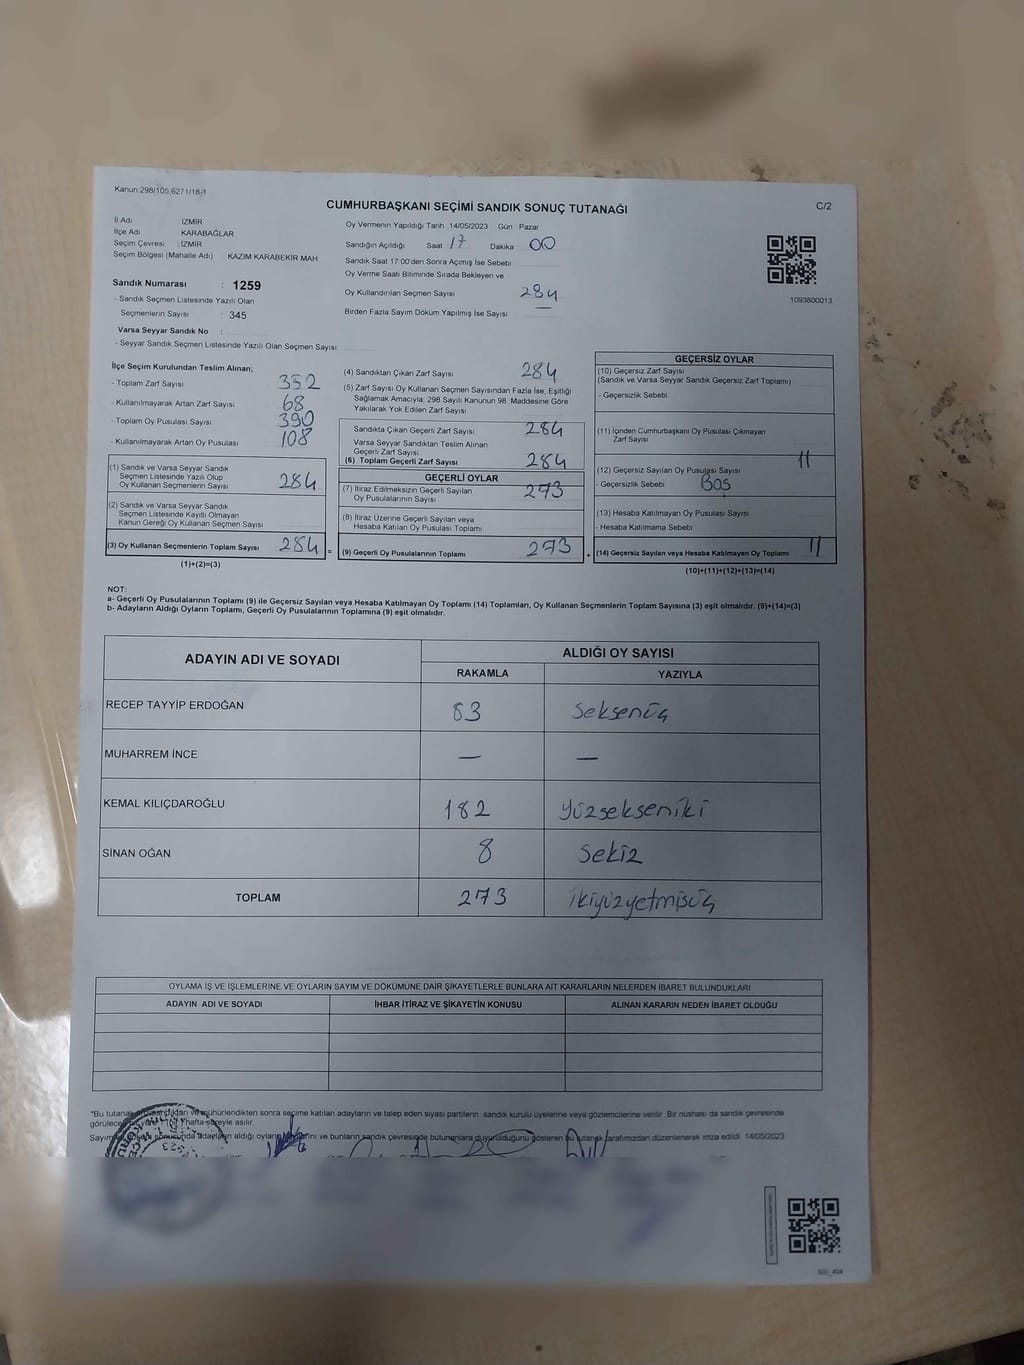 Kanun:298/105,6271/18-1
CUMHURBAŞKANI SEÇİMİ SANDIK SONUÇ TUTANAĞI
C/2
İl Adı : İZMİR
İlçe Adı : KARABAĞLAR
Seçim Çevresi : İZMİR
Seçim Bölgesi (Mahalle Adı) KAZIM KARABEKİR MAH.
Sandık Numarası : 1259
- Sandık Seçmen Listesinde Yazılı Olan
Seçmenlerin Sayısı : 345
Varsa Seyyar Sandık No :
- Seyyar Sandık Seçmen Listesinde Yazılı Olan Seçmen Sayısı
Oy Vermenin Yapıldığı Tarih 14/05/2023 Gün : Pazar
Sandığın Açıldığı Saat 17 Dakika 00
Sandık Saat 17:00'den Sonra Açımış İse Sebebi
Oy Verme Saati Bitiminde Sırada Bekleyen ve
Oy Kullandırılan Seçmen Sayısı 284
Birden Fazla Sayım Döküm Yapılmış İse Sayısı —
1093800013
İlçe Seçim Kurulundan Teslim Alınan;
- Toplam Zarf Sayısı 352
- Kullanılmayarak Artan Zarf Sayısı 68
- Toplam Oy Pusulası Sayısı 390
- Kullanılmayarak Artan Oy Pusulası 108
(1) Sandık ve Varsa Seyyar Sandık
Seçmen Listesinde Yazılı Olup
Oy Kullanan Seçmenlerin Sayısı 284
(2) Sandık ve Varsa Seyyar Sandık
Seçmen Listesinde Kayıtlı Olmayan
Kanun Gereği Oy Kullanan Seçmen Sayısı
(3) Oy Kullanan Seçmenlerin Toplam Sayısı 284 =
(1)+(2)=(3)
(4) Sandıktan Çıkan Zarf Sayısı 284
(5) Zarf Sayısı Oy Kullanan Seçmen Sayısından Fazla İse, Eşitliği
Sağlamak Amacıyla; 298 Sayılı Kanunun 98. Maddesine Göre
Yakılarak Yok Edilen Zarf Sayısı
Sandıkta Çıkan Geçerli Zarf Sayısı 284
Varsa Seyyar Sandıktan Teslim Alınan
Geçerli Zarf Sayısı
(6) Toplam Geçerli Zarf Sayısı 284
GEÇERLİ OYLAR
(7) İtiraz Edilmeksizin Geçerli Sayılan
Oy Pusulalarının Sayısı 273
(8) İtiraz Üzerine Geçerli Sayılan veya
Hesaba Katılan Oy Pusulası Toplamı
(9) Geçerli Oy Pusulalarının Toplamı 273 +
GEÇERSİZ OYLAR
(10) Geçersiz Zarf Sayısı
(Sandık ve Varsa Seyyar Sandık Geçersiz Zarf Toplamı)
- Geçersizlik Sebebi
(11) İçinden Cumhurbaşkanı Oy Pusulası Çıkmayan
Zarf Sayısı
(12) Geçersiz Sayılan Oy Pusulası Sayısı 11
- Geçersizlik Sebebi Boş
(13) Hesaba Katılmayan Oy Pusulası Sayısı
- Hesaba Katılmama Sebebi
(14) Geçersiz Sayılan veya Hesaba Katılmayan Oy Toplamı 11
(10)+(11)+(12)+(13)=(14)
NOT:
a- Geçerli Oy Pusulalarının Toplamı (9) ile Geçersiz Sayılan veya Hesaba Katılmayan Oy Toplamı (14) Toplamları, Oy Kullanan Seçmenlerin Toplam Sayısına (3) eşit olmalıdır. (9)+(14)=(3)
b- Adayların Aldığı Oyların Toplamı, Geçerli Oy Pusulalarının Toplamına (9) eşit olmalıdır.
ADAYIN ADI VE SOYADI
ALDIĞI OY SAYISI
RAKAMLA YAZIYLA
RECEP TAYYİP ERDOĞAN 83 seksenüç
MUHARREM İNCE — —
KEMAL KILIÇDAROĞLU 182 yüzsekseniki
SİNAN OĞAN 8 sekiz
TOPLAM 273 ikiyüzyetmişüç
OYLAMA İŞ VE İŞLEMLERİNE VE OYLARIN SAYIM VE DÖKÜMÜNE DAİR ŞİKAYETLERLE BUNLARA AİT KARARLARIN NELERDEN İBARET BULUNDUKLARI
ADAYIN ADI VE SOYADI İHBAR İTİRAZ VE ŞİKAYETİN KONUSU ALINAN KARARIN NEDEN İBARET OLDUĞU
*Bu tutanak mühürlendikten sonra seçime katılan adayların ve talep eden siyasi partilerin sandık kurulu üyelerine veya gözlemcilerine verilir. Bir nüshası da sandık çevresinde
hafta süreyle asılır
sonucunda adayların aldığı oyların ve bunların sandık çevresinde bulunanlara duyurulduğunu gösteren bu tutanak tarafımızdan düzenlenerek imza edildi. 14/05/2023